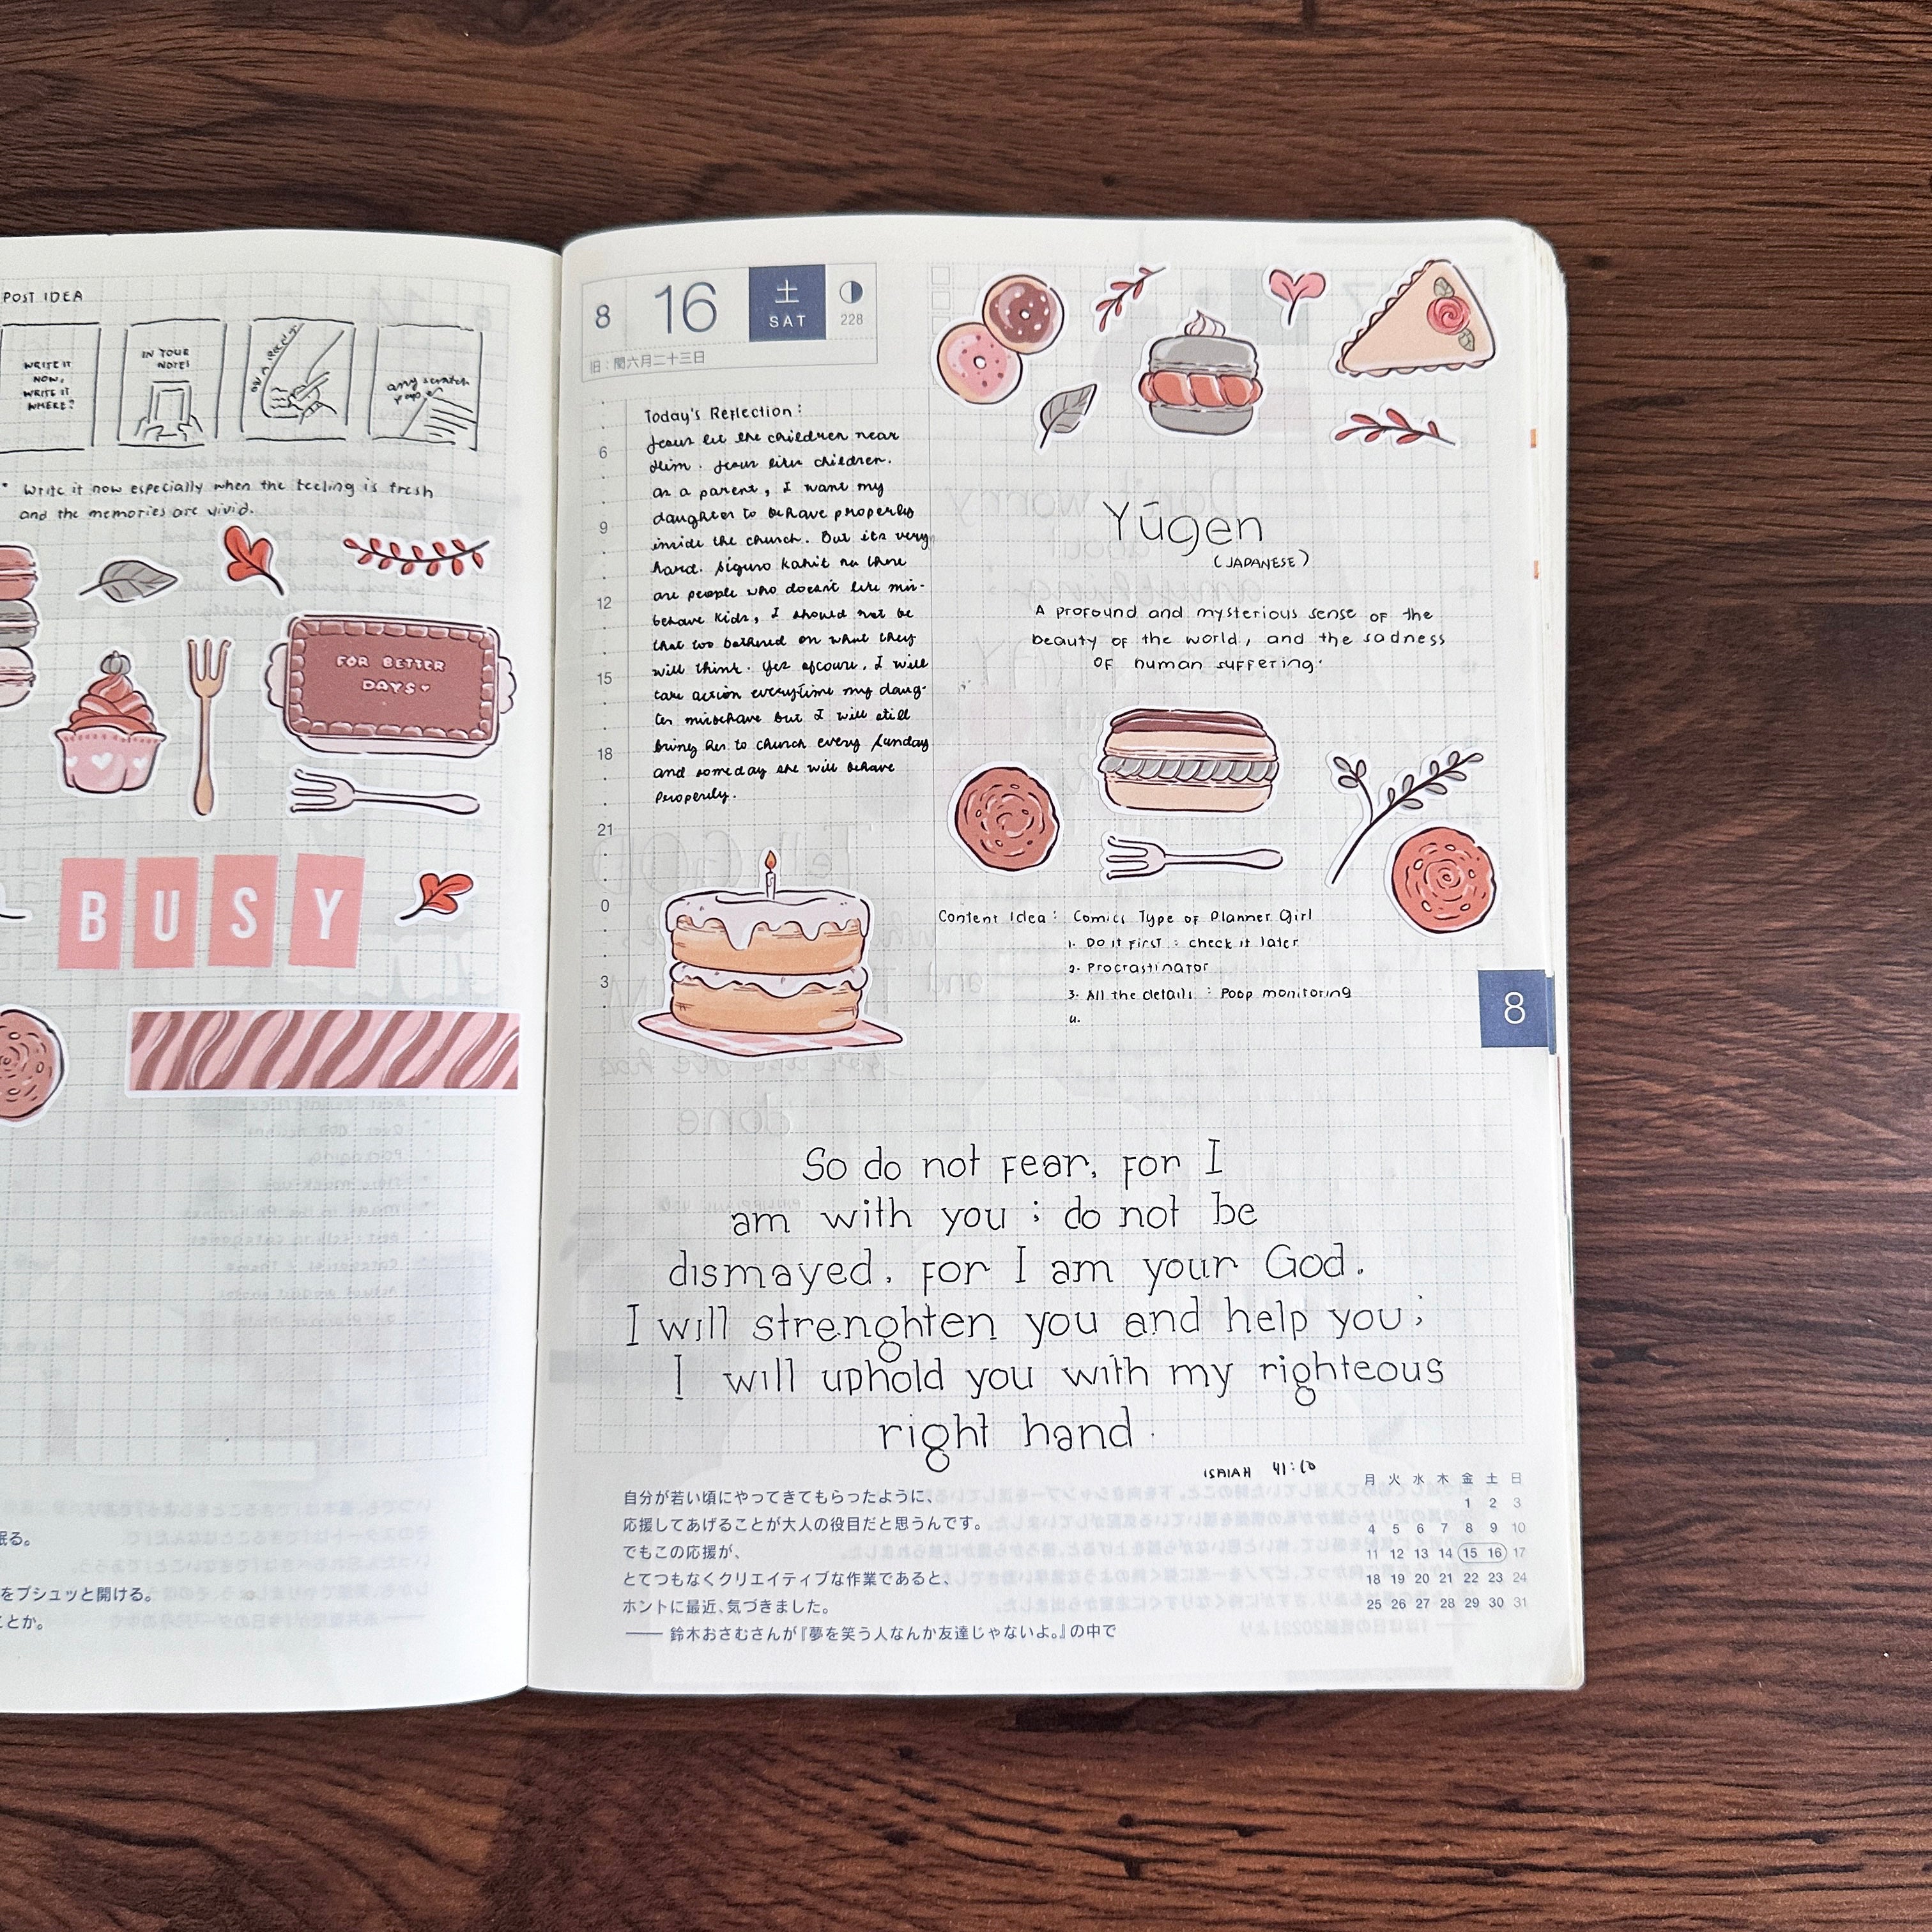 POST IDEA
WRITE IT
NOW,
WRITE IT
WHERE?
IN YOUR
NOTES
any scratch
paper
• Write it now especially when the feeling is fresh
and the memories are vivid.
FOR BETTER
DAYS
BUSY
眠る。
をプシュッと開ける。
ことか。
8 16 土 SAT 228
旧:閏六月二十三日
6
9
12
15
18
21
0
3
Today's Reflection:
Jesus let the children near
Him. Jesus likes children.
As a parent, I want my
daughter to behave properly
inside the church. But its very
hard. Siguro kahit na there
are people who doesn't like mis-
behave kids, I should not be
that too bothered on what they
will think. Yes ofcourse, I will
take action everytime my daug-
ter misbehave but I will still
bring her to church every Sunday
and someday she will behave
properly.
Yūgen
(JAPANESE)
A profound and mysterious sense of the
beauty of the world, and the sadness
of human suffering.
Content Idea: Comics Type of Planner Girl
1. Do it first : check it later
2. Procrastinator
3. All the details : Poop monitoring
4.
8
So do not fear, for I
am with you ; do not be
dismayed, for I am your God.
I will strenghten you and help you;
I will uphold you with my righteous
right hand.
ISAIAH 41:10
自分が若い頃にやってきてもらったように、
応援してあげることが大人の役目だと思うんです。
でもこの応援が、
とてつもなくクリエイティブな作業であると、
ホントに最近、気づきました。
―― 鈴木おさむさんが『夢を笑う人なんか友達じゃないよ。』の中で
月 火 水 木 金 土 日
1 2 3
4 5 6 7 8 9 10
11 12 13 14 15 16 17
18 19 20 21 22 23 24
25 26 27 28 29 30 31